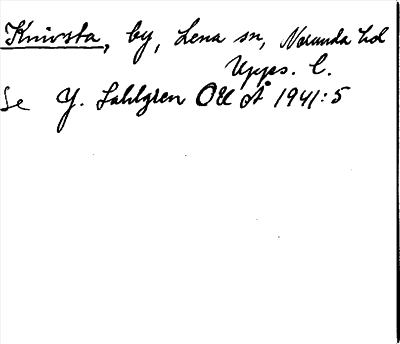 Knivsta, by, Lena sn, Norunda hd
Upps. l.
Se J. Sahlgren OUÅ 1941:5